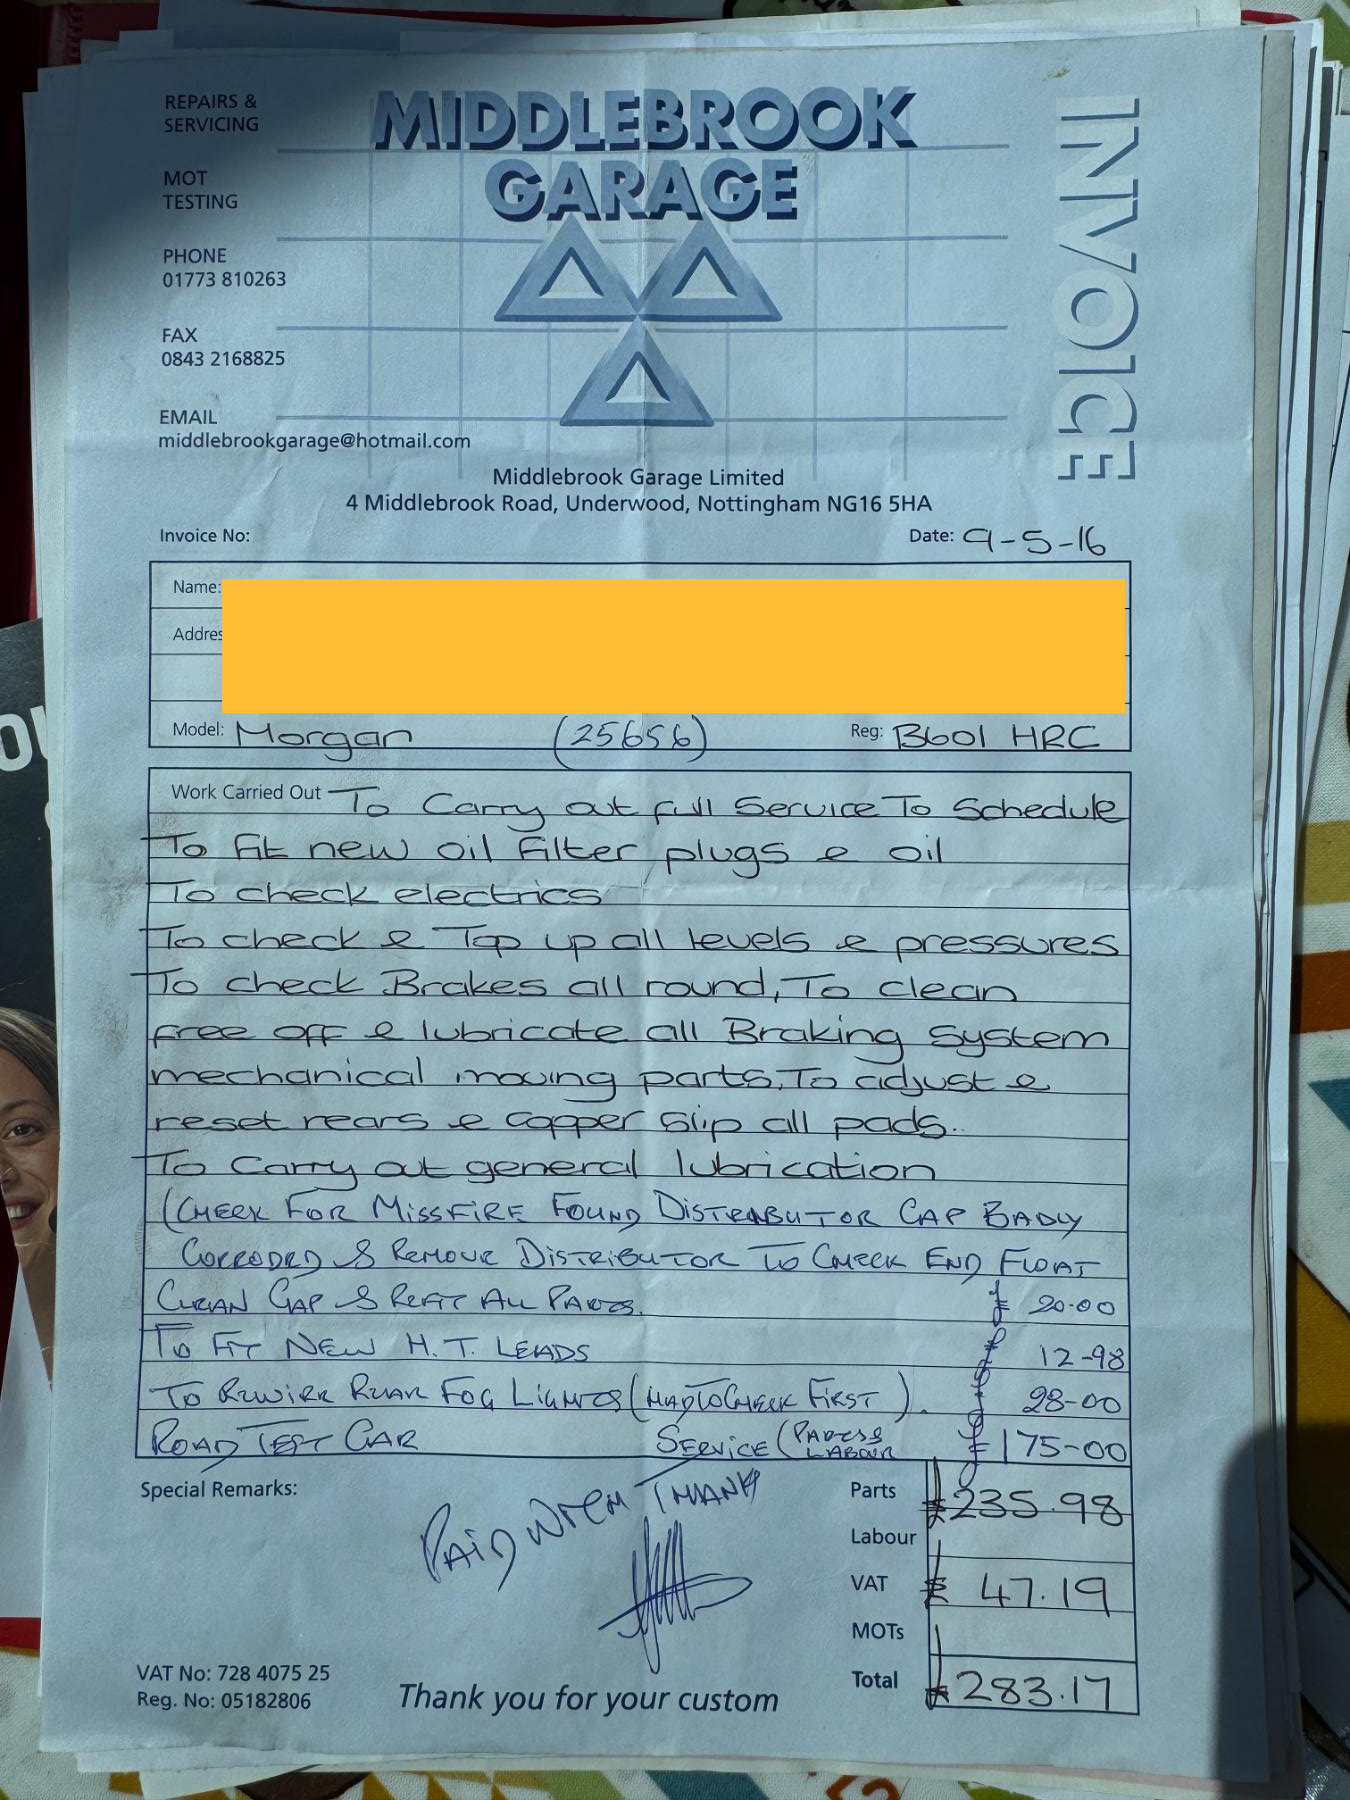 REPAIRS &
SERVICING
MOT
TESTING
PHONE
01773 810263
FAX
0843 2168825
EMAIL
middlebrookgarage@hotmail.com
MIDDLEBROOK
GARAGE
INVOICE
Middlebrook Garage Limited
4 Middlebrook Road, Underwood, Nottingham NG16 5HA
Invoice No:
Date: 9-5-16
Name:
Addres
Model: Morgan (25656) Reg: B601 HRC
Work Carried Out To Carry out full Service To Schedule
To Fit new oil Filter plugs & oil
To check electrics
To check & Top up all levels & pressures
To check Brakes all round, To clean
free off & lubricate all Braking System
mechanical moving parts, To adjust &
reset rears & copper slip all pads.
To Carry out general lubrication
(CHECK FOR MISSFIRE FOUND DISTRIBUTOR CAP BADLY
CORRODED & REMOVE DISTRIBUTOR TO CHECK END FLOAT
CLEAN CAP & REFIT ALL PARTS. £ 20.00
TO FIT NEW H.T. LEADS £ 12-98
TO REWIRE REAR FOG LIGHTS (HAD TO CHECK FIRST). £ 28-00
ROAD TEST CAR SERVICE (PARTS & LABOUR £ 175-00
Special Remarks:
PAID WITH THANKS
Parts £235.98
Labour
VAT £ 47.19
MOTs
Total £283.17
VAT No: 728 4075 25
Reg. No: 05182806
Thank you for your custom